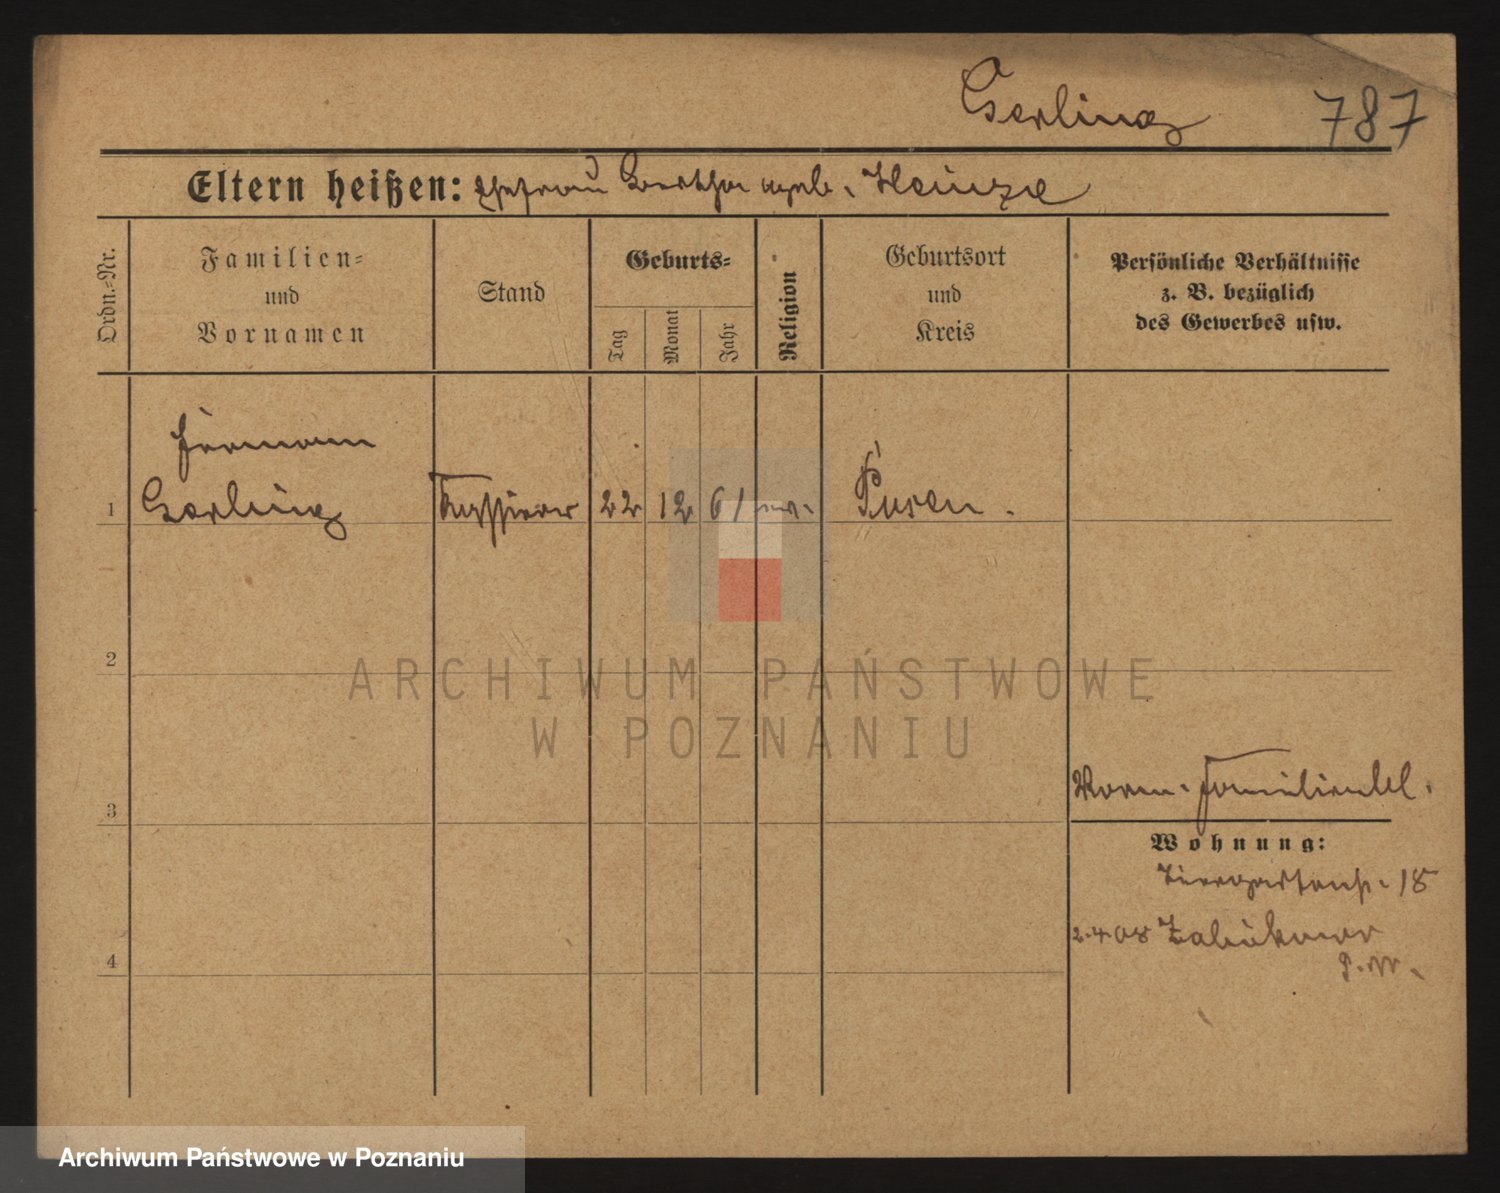 Gerling 787
Eltern heißen: Ehefrau Bertha geb. Heinze
Ordn.-Nr.
Familien-
und
Vornamen
Stand
Geburts-
Tag
Monat
Jahr
Religion
Geburtsort
und
Kreis
Persönliche Verhältnisse
z. B. bezüglich
des Gewerbes usw.
Hermann
1 Gerling Kassierer 22 12 61 Posen.
2
ARCHIWUM PAŃSTWOWE
W POZNANIU
3
Wohnung:
Tiergartenstr. 18
2.4.08
4
Archiwum Państwowe w Poznaniu